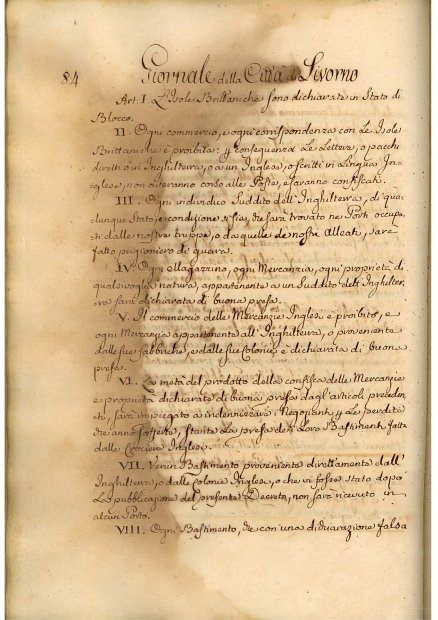 84 Giornale della Città di Livorno
Art: I. L'Isole Brittaniche sono dichiarate in Stato di
Blocco.
II. Ogni commercio, e ogni corrispondenza con Le Isole
Brittaniche è proibita: p conseguenza Le Lettere, o pacchi
diretti ò in Inghilterra, o a un Inglese, o scritti in Lingua In-
glese, non averanno corso alle Poste, e saranno confiscati.
III. Ogni individuo Suddito dell'Inghilterra, di qua-
lunque Stato, e condizione si sia, che sarà trovato ne Porti occupa-
ti dalle nostre truppe, o da quelle de nostri Alleati, sarà
fatto prigioniero di guerra.
IV. Ogni Magazzino, ogni Mercanzia, ogni proprietà di
qualsivoglia natura, appartenente a un Suddito dell'Inghilter-
ra sarà dichiarata di buona presa.
V. Il commercio delle Mercanzie Inglesi è proibito, e
ogni Mercanzia appartenente all'Inghilterra, o proveniente
dalle sue fabbriche, e dalle sue Colonie, è dichiarata di buona
presa.
VI. La metà del prodotto della confisca delle Mercanzie
e proprietà dichiarate di buona presa dagl'articoli preceden-
ti, sarà impiegato a indennizzare i Negozianti, p Le perdite
che anno sofferto, stante la presa dei Loro Bastimenti fatta
dalle Crociere Inglesi.
VII. Verun Bastimento proveniente direttamente dall'
Inghilterra, o dalle Colonie Inglesi, o che vi fosse stato dopo
La pubblicazione del presente Decreto, non sarà ricevuto in
alcun Porto.
VIII. Ogni Bastimento, che con una dichiarazione falsa